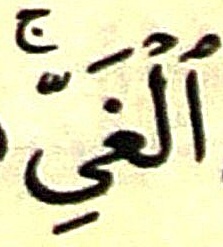 ٱلْغَىِّۚ